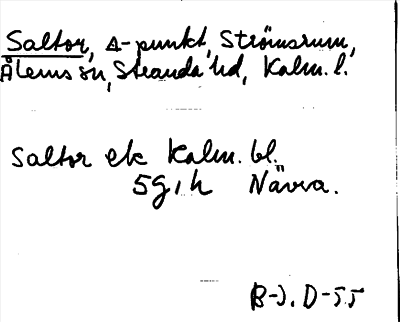 Saltor, △-punkt, Strömsrum,
Ålems sn, Stranda hd, Kalm. l.
Saltor ek Kalm. bl.
5g, h Návra.
B-J. D-55